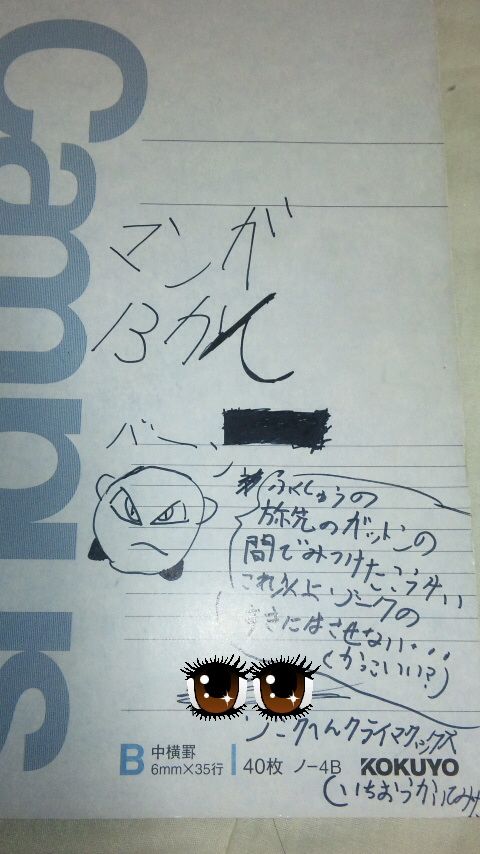 Campus
マンガ
13かん
バーン
ふくしゅうの
旅先のガットンの
間でみつけたこうげい
これ以上ゾークの
すきにはさせない...
(かっこいい?)
ゾークへんクライマックス
B 中横罫 6mm×35行 40枚 ノー4B KOKUYO